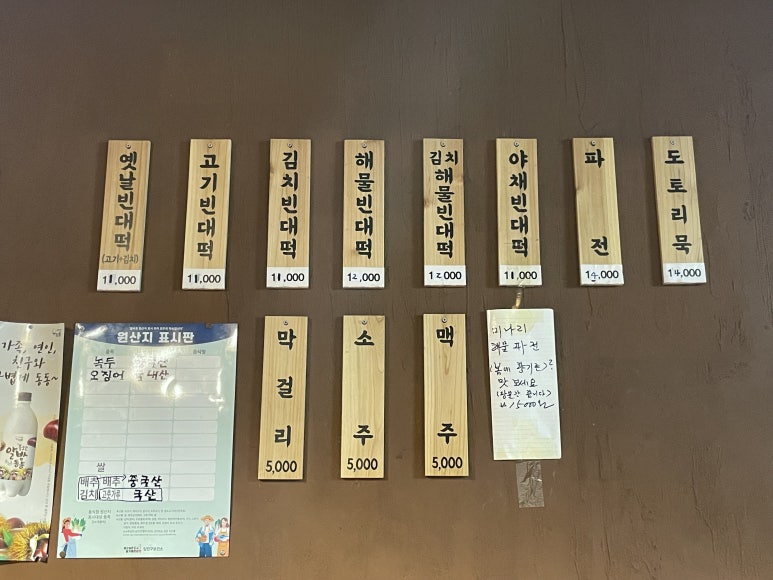 옛날빈대떡
(고기+김치)
11,000
고기빈대떡
11,000
김치빈대떡
11,000
해물빈대떡
12,000
김치
해물빈대떡
12,000
야채빈대떡
11,000
파전
14,000
도토리묵
14,000
가족, 연인,
친구와
알밤
원산지 표시판
녹두
오징어 국내산
쌀
배추 배추 중국산
김치 고춧가루 국산
막걸리
5,000
소주
5,000
맥주
5,000
미나리
해물 파전
맛 보세요
15000원